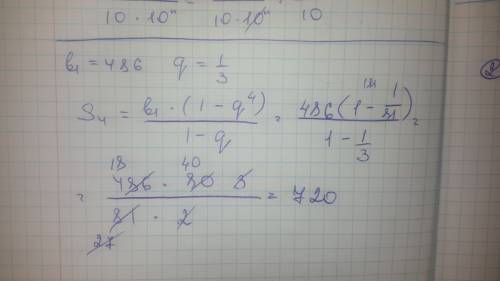 10 · 10ⁿ   10 · 10ⁿ   10
b₁ = 486   q = 1/3
S₄ = b₁ · (1 − q⁴) / (1 − q) = 486 (1 − 1/81) / (1 − 1/3) =
18   40
= 486 · 80 · 3 / (81 · 2) = 720
27